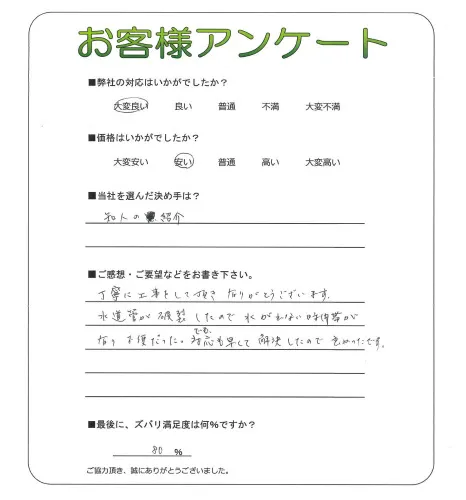 お客様アンケート
■弊社の対応はいかがでしたか？
大変良い 良い 普通 不満 大変不満
■価格はいかがでしたか？
大変安い 安い 普通 高い 大変高い
■当社を選んだ決め手は？
知人の紹介
■ご感想・ご要望などをお書き下さい。
丁寧に工事をして頂き有りがとうございます。
水道管が破裂したので水が出ない時間帯が
有り不便だった。でも、対応も早くて解決したので良かったです。
■最後に、ズバリ満足度は何%ですか？
80 %
ご協力頂き、誠にありがとうございました。